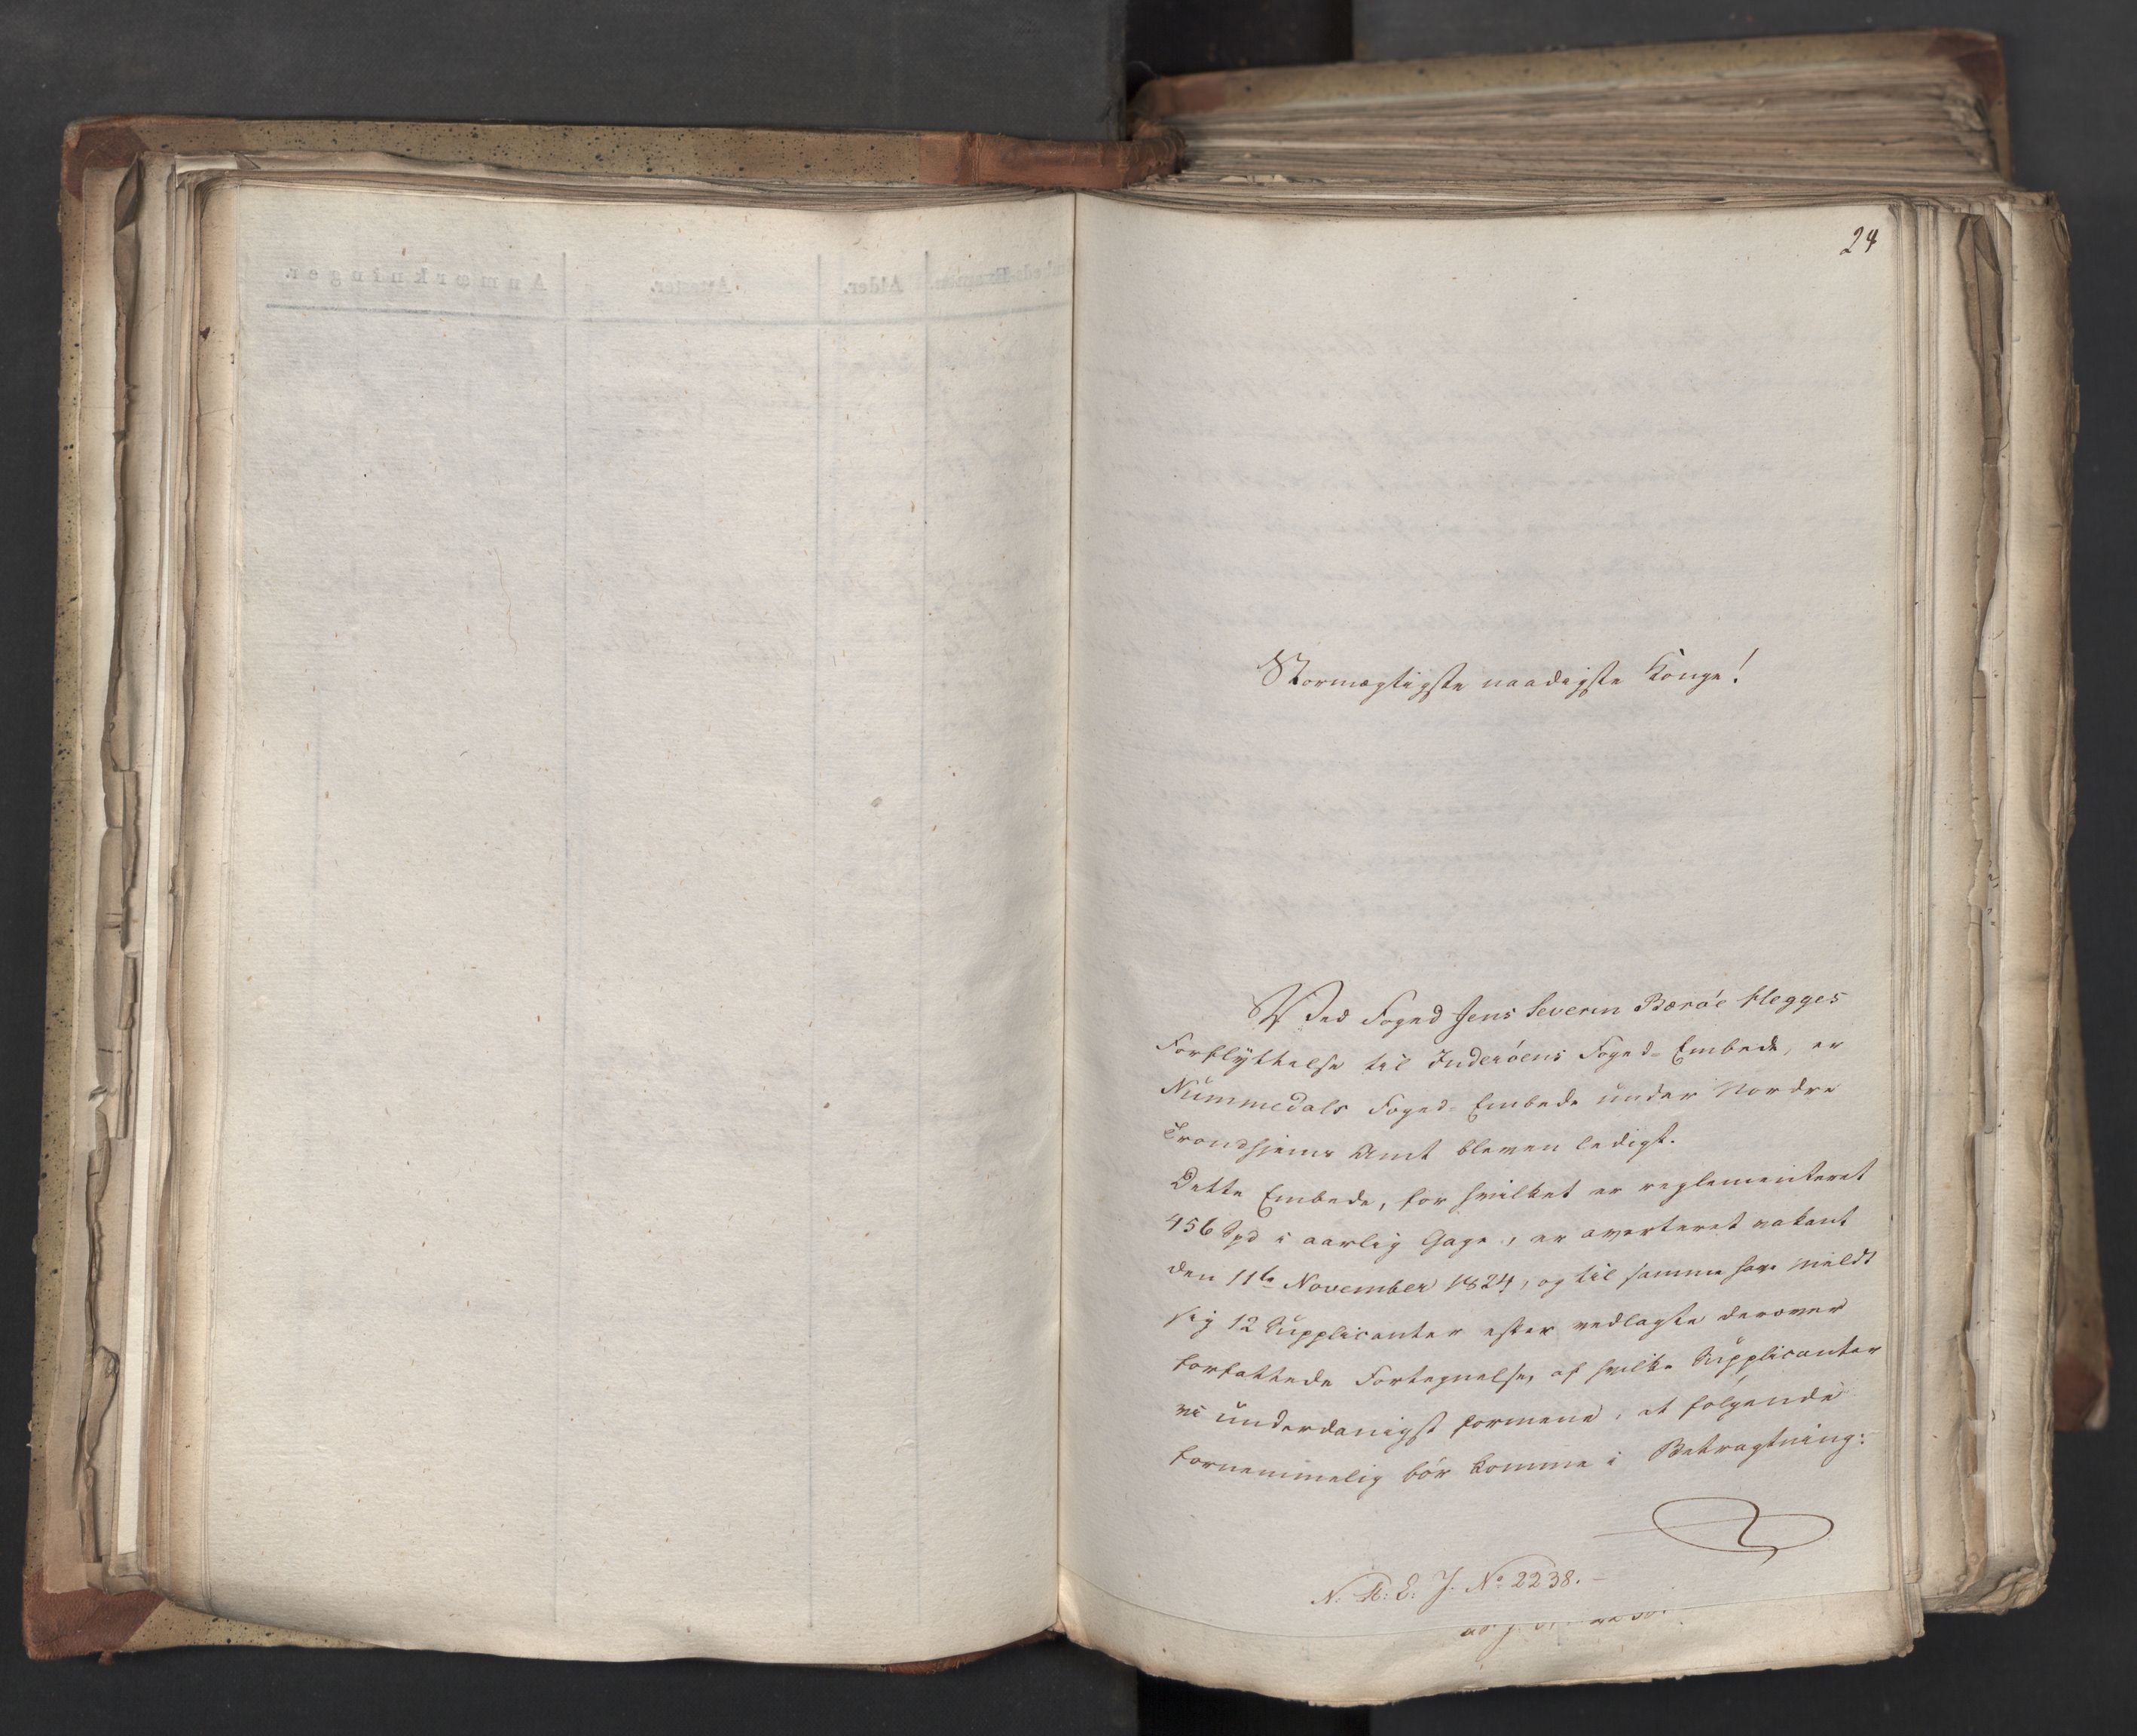 24
Stormægtigste naadigste Konge!
Ved Foged Jens Severin Barøe Hegges
Forflyttelse til Inderøens Foged-Embede, er
Nummedals Foged-Embede under Nordre
Trondhjems Amt bleven ledigt.
Dette Embede, for hvilket er reglementeret
456 Spd i aarlig Gage, er averteret vakant
den 11te November 1824, og til samme have meldt
sig 12 Supplicanter efter vedlagte derover
forfattede Fortegnelse, af hvilke Supplicanter
vi underdanigst formene, at følgende
fornemmelig bør komme i Betragtning:
N. R: E: J. No 2238.